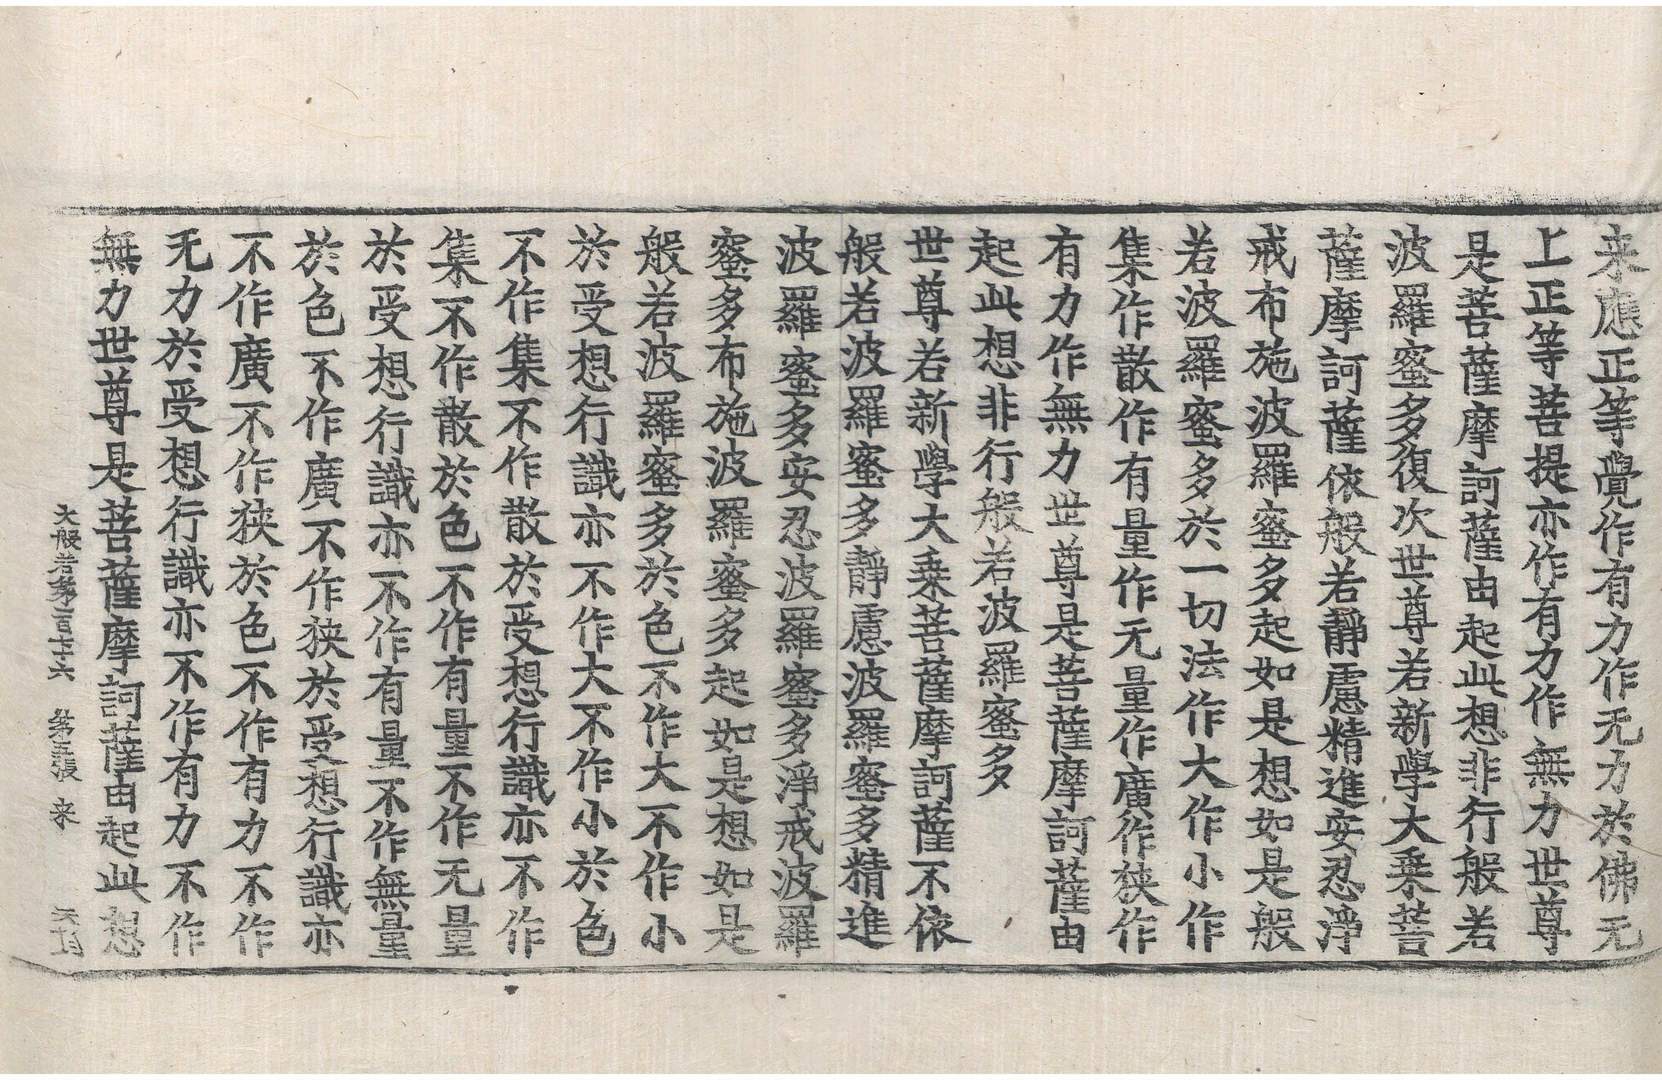 来應正等覺作有力作无力於佛无
上正等菩提亦作有力作無力世尊
是菩薩摩訶薩由起此想非行般若
波羅蜜多復次世尊若新學大乗菩
薩摩訶薩依般若靜慮精進安忍淨
戒布施波羅蜜多起如是想如是般
若波羅蜜多於一切法作大作小作
集作散作有量作无量作廣作狹作
有力作無力世尊是菩薩摩訶薩由
起此想非行般若波羅蜜多
世尊若新學大乗菩薩摩訶薩不依
般若波羅蜜多靜慮波羅蜜多精進
波羅蜜多安忍波羅蜜多淨戒波羅
蜜多布施波羅蜜多起如是想如是
般若波羅蜜多於色不作大不作小
於受想行識亦不作大不作小於色
不作集不作散於受想行識亦不作
集不作散於色不作有量不作无量
於受想行識亦不作有量不作無量
於色不作廣不作狹於受想行識亦
不作廣不作狹於色不作有力不作
无力於受想行識亦不作有力不作
無力世尊是菩薩摩訶薩由起此想
大般若第一百七十六 第五張 来